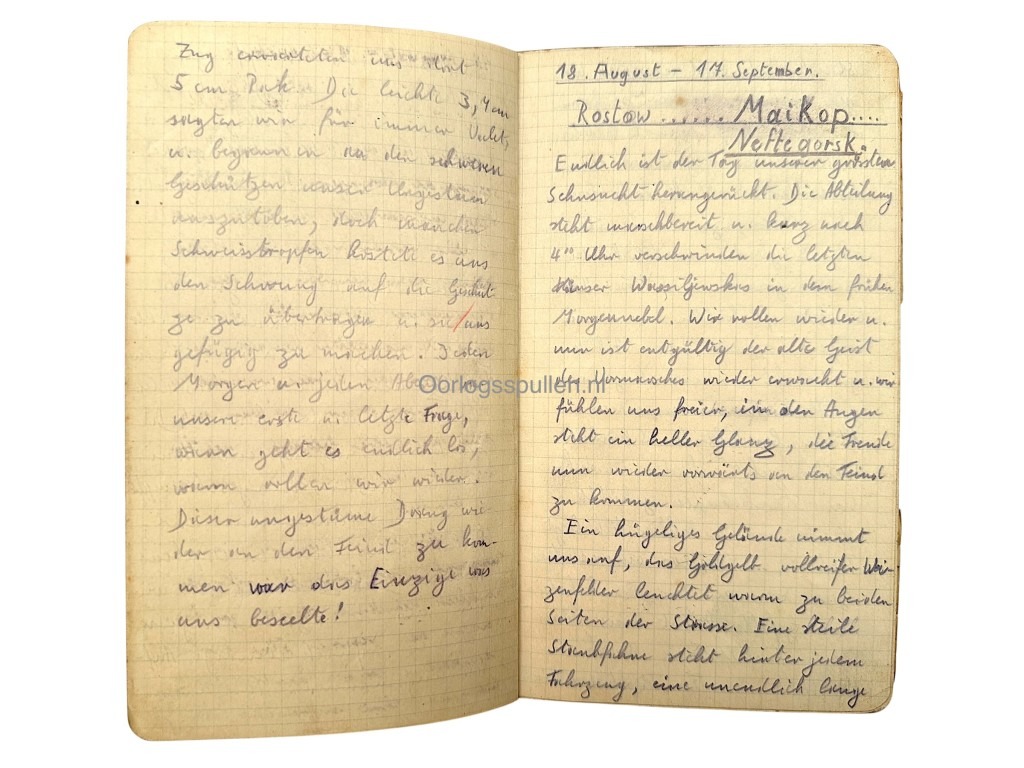 Zug erwarteten uns dort
5 cm Pak. Die leichte 3,7 cm
sagten wir für immer Valet,
u. begannen an den schweren
Geschützen unser Ungestüm
auszutoben, doch manchen
Schweisstropfen kostete es uns
den Schwung auf die Geschüt-
ze zu übertragen u. sie uns
gefügig zu machen. Jeden
Morgen u. jeden Abend
unsere erste u. letzte Frage,
wann geht es endlich los,
wann rollen wir wieder.
Dieser ungestüme Drang wie-
der an den Feind zu kom-
men war das Einzige was
uns beseelte!
18. August – 17. September.
Rostow ...... Maikop....
Neftegorsk.
Endlich ist der Tag unserer grössten
Sehnsucht herangerückt. Die Abteilung
steht marschbereit u. kurz nach
4°° Uhr verschwinden die letzten
Häuser Wassiljewskas in dem frühen
Morgennebel. Wir rollen wieder u.
nun ist entgültig der alte Geist
des Vormarsches wieder erwacht u. wir
fühlen uns freier, in den Augen
steht ein heller Glanz, die Freude
nun wieder vorwärts an den Feind
zu kommen.
Ein hügeliges Gelände nimmt
uns auf, das Goldgelb vollreifer Wei-
zenfelder leuchtet warm zu beiden
Seiten der Strasse. Eine steile
Staubfahne steht hinter jedem
Fahrzeug, eine unendlich lange
Oorlogsspullen.nl